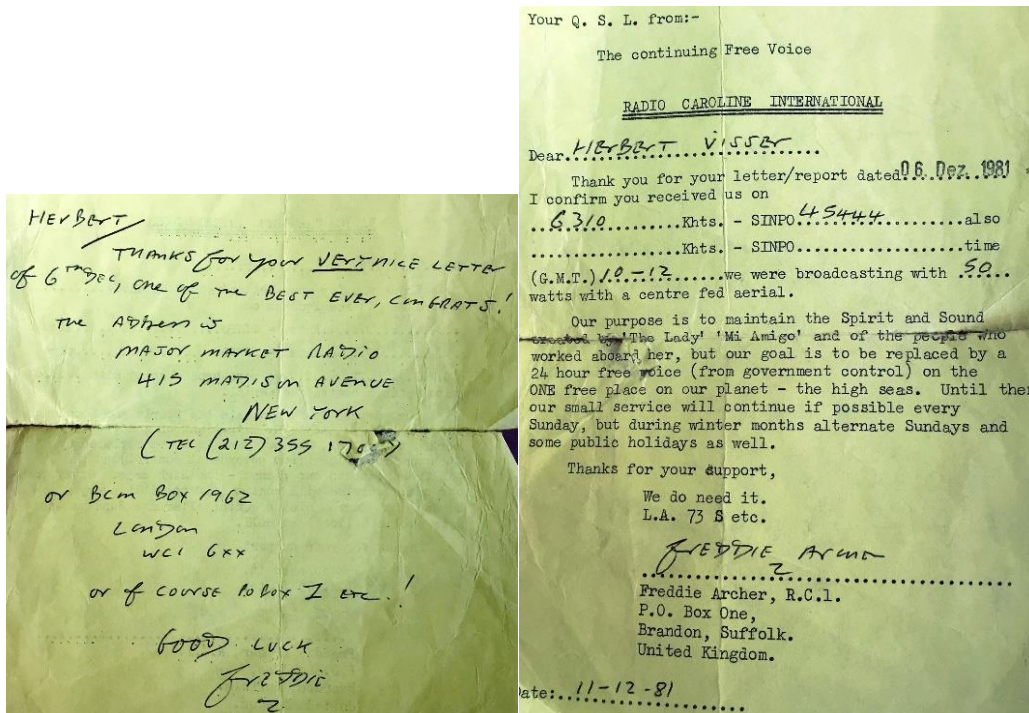 HERBERT
THANKS FOR YOUR VERY NICE LETTER
OF 6TH DEC, ONE OF THE BEST EVER, CONGRATS!
THE ADDRESS IS
MAJOR MARKET RADIO
415 MADISON AVENUE
NEW YORK
(TEL (212) 355
OR BCM BOX 1962
LONDON
WC1 6XX
OR OF COURSE PO BOX I ETC.!
GOOD LUCK
FREDDIE
2
Your Q. S. L. from:-
The continuing Free Voice
RADIO CAROLINE INTERNATIONAL
Dear..HERBERT VISSER......
Thank you for your letter/report dated 06. Dez. 1981
I confirm you received us on
...6310.........Khts. - SINPO 45444.........also
................Khts. - SINPO...............time
(G.M.T.) 10-12......we were broadcasting with .50....
watts with a centre fed aerial.
Our purpose is to maintain the Spirit and Sound
created by 'The Lady' 'Mi Amigo' and of the people who
worked aboard her, but our goal is to be replaced by a
24 hour free voice (from government control) on the
ONE free place on our planet - the high seas. Until then
our small service will continue if possible every
Sunday, but during winter months alternate Sundays and
some public holidays as well.
Thanks for your support,
We do need it.
L.A. 73 S etc.
FREDDIE ARCHER
2
Freddie Archer, R.C.1.
P.O. Box One,
Brandon, Suffolk.
United Kingdom.
Date:..11-12-81..................